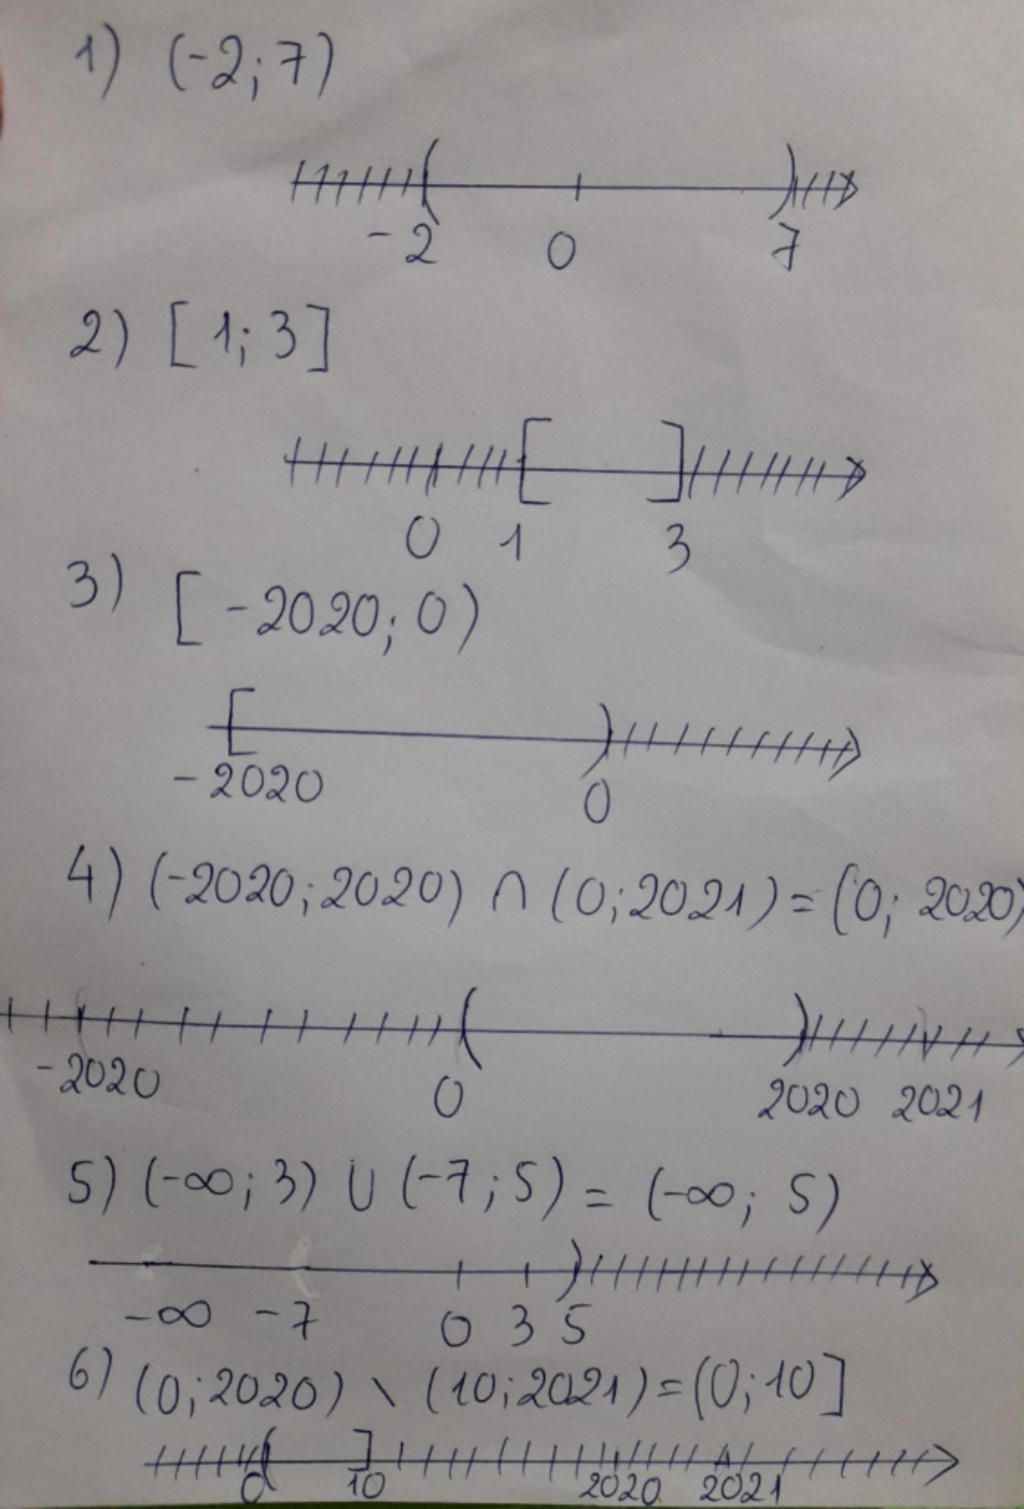 1) (-2; 7)
-2 0 7
2) [1; 3]
0 1 3
3) [-2020; 0)
-2020 0
4) (-2020; 2020) ∩ (0; 2021) = (0; 2020)
-2020 0 2020 2021
5) (-∞; 3) ∪ (-7; 5) = (-∞; 5)
-∞ -7 0 3 5
6) (0; 2020) \ (10; 2021) = (0; 10]
0 10 2020 2021